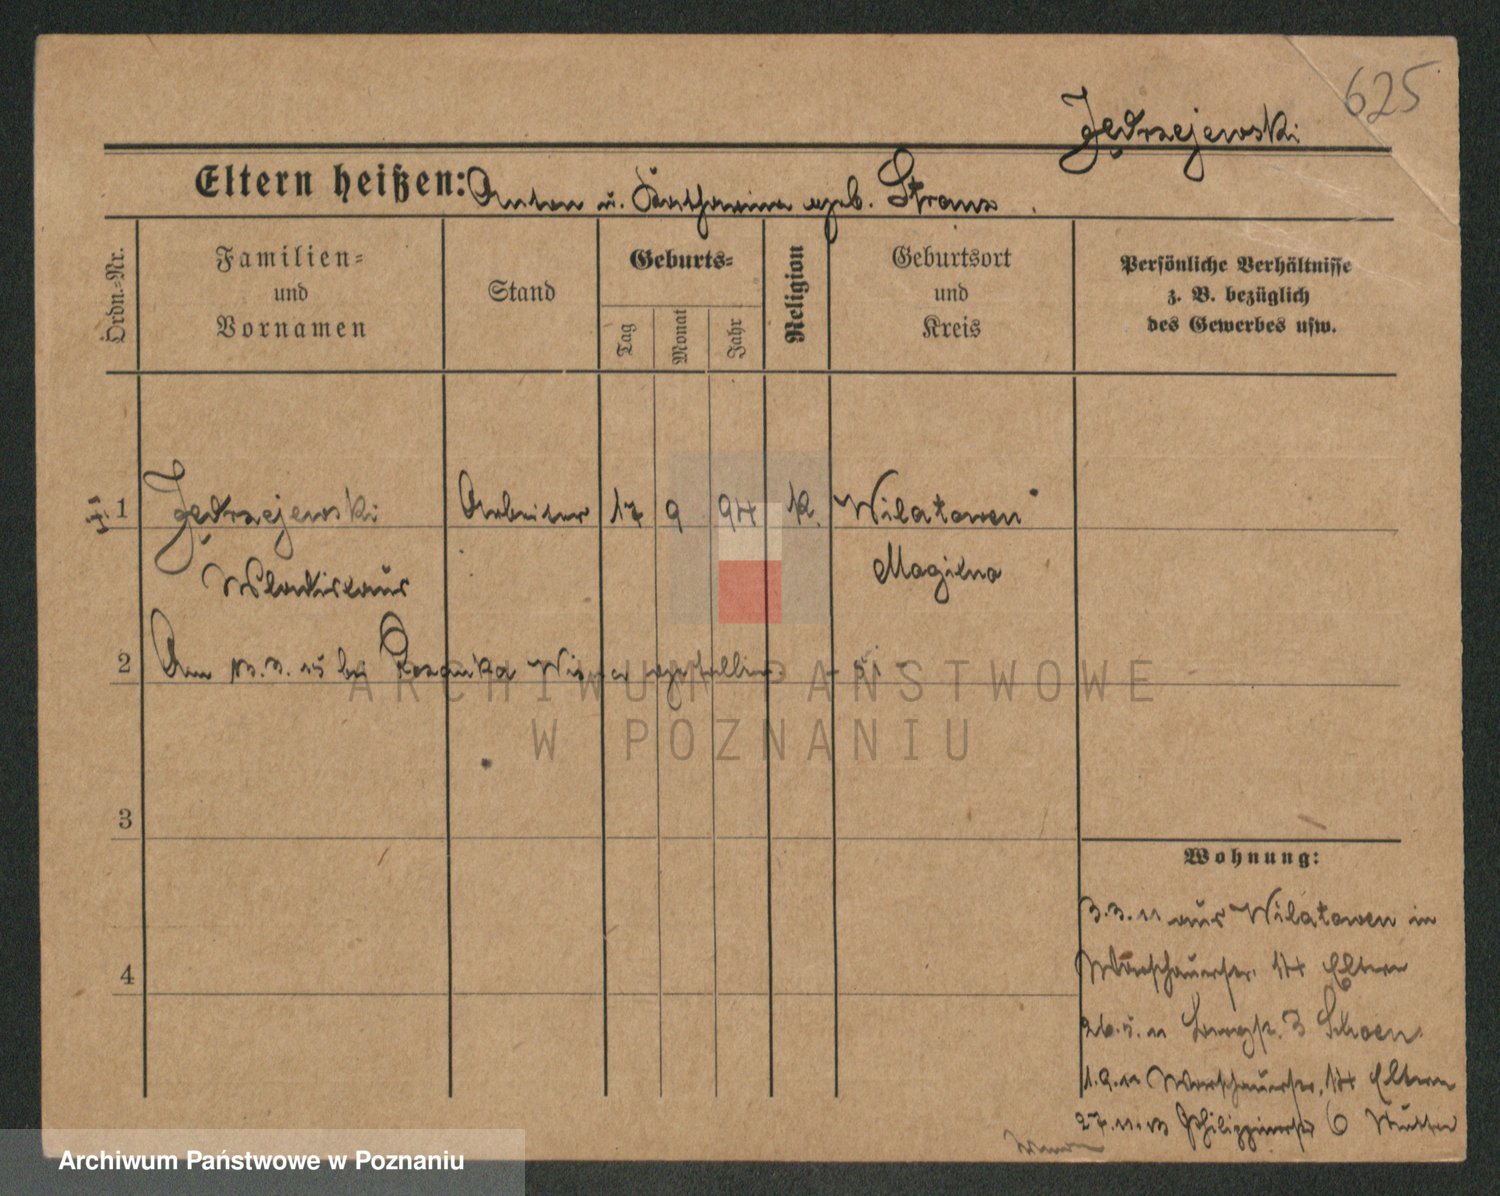 625
Jędrzejewski
Eltern heißen: Anton u. Katharina geb. Stranz
Ordn.-Nr.
Familien-
und
Vornamen
Stand
Geburts-
Tag
Monat
Jahr
Religion
Geburtsort
und
Kreis
Persönliche Verhältnisse
z. B. bezüglich
des Gewerbes usw.
1 Jędrzejewski Arbeiter 17 9 94 k. Wilatowen
Wladislaus Mogilno
2 Am 13.3.15 bei gefallen
3
4
Wohnung:
3.3.11 aus Wilatowen in
Warschauerstr. 14 Eltern
26.5.11 3 Schoen
1.9.11 Warschauerstr. 14 Eltern
27.11.13 Philippinerstr 6 Mutter
ARCHIWUM PAŃSTWOWE
W POZNANIU
Archiwum Państwowe w Poznaniu